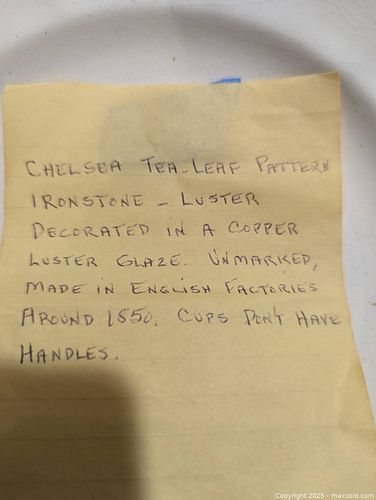 CHELSEA TEA-LEAF PATTERN
IRONSTONE - LUSTER
DECORATED IN A COPPER
LUSTER GLAZE. UNMARKED,
MADE IN ENGLISH FACTORIES
AROUND 1850. CUPS DON'T HAVE
HANDLES.
Copyright 2025 - maxsold.com